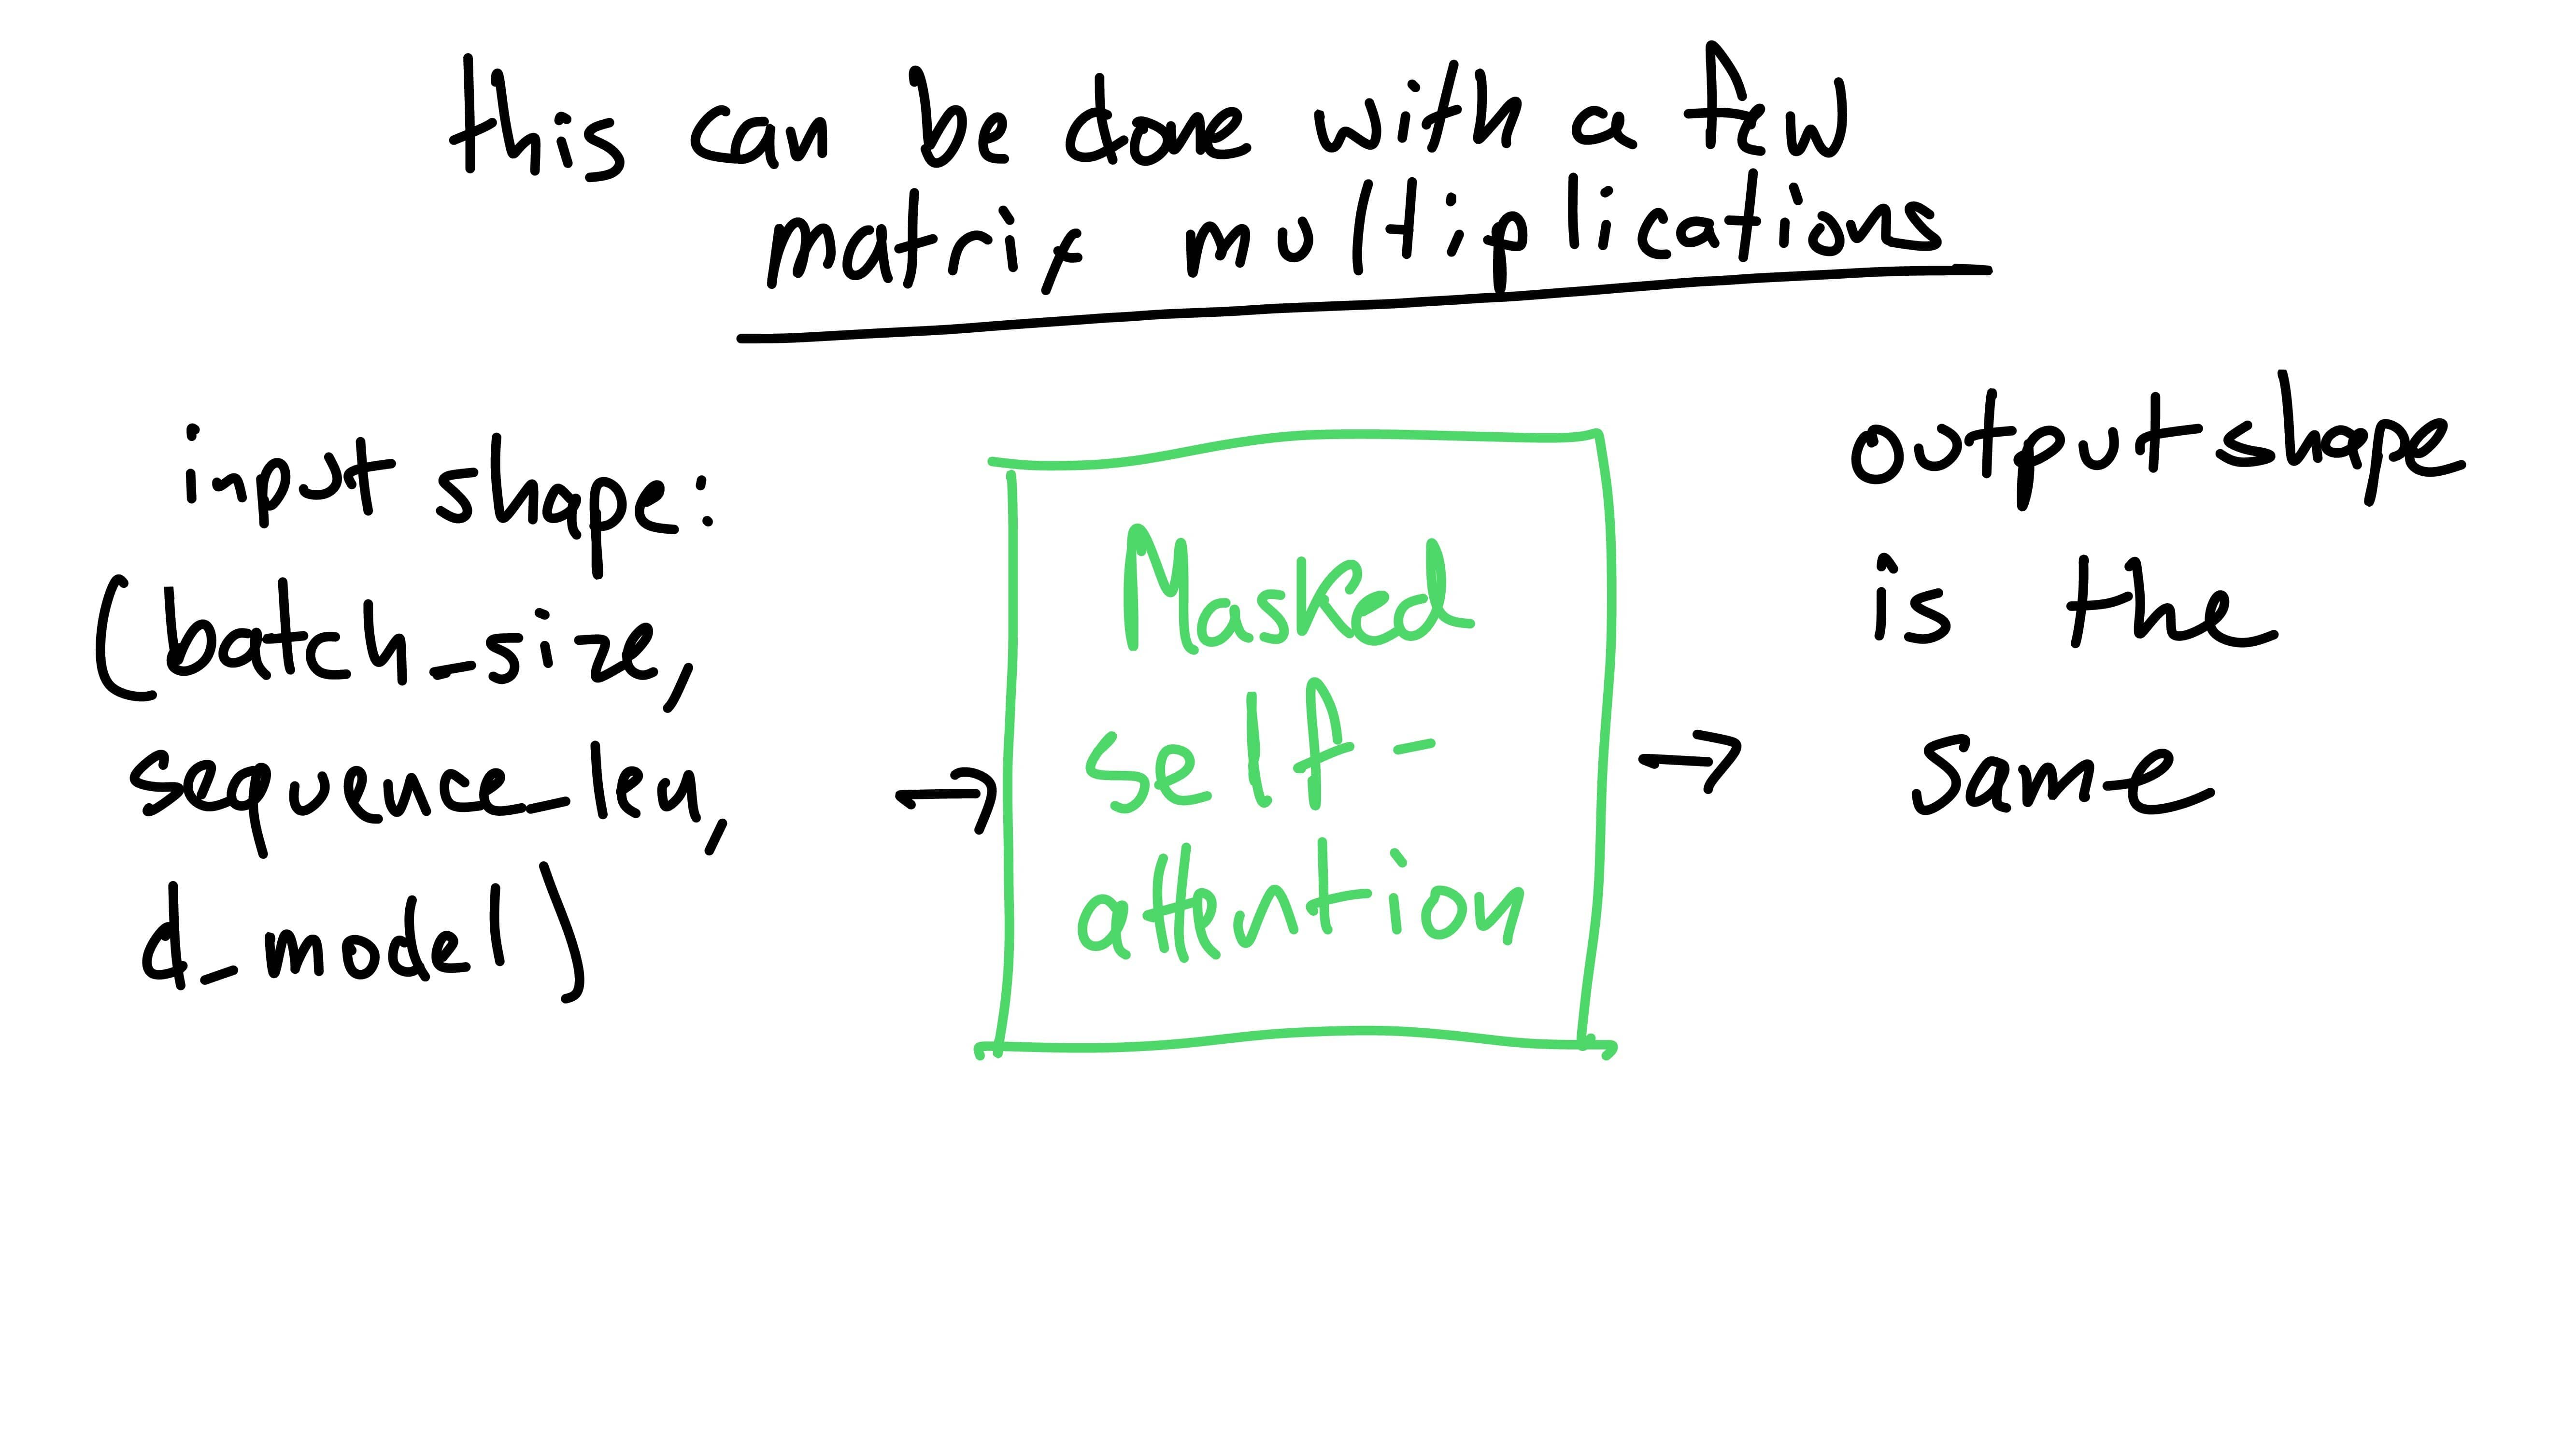 this can be done with a few
matrix multiplications
input shape:
(batch_size,
sequence_len,
d_model)
→
Masked
self-
attention
→
output shape
is the
same